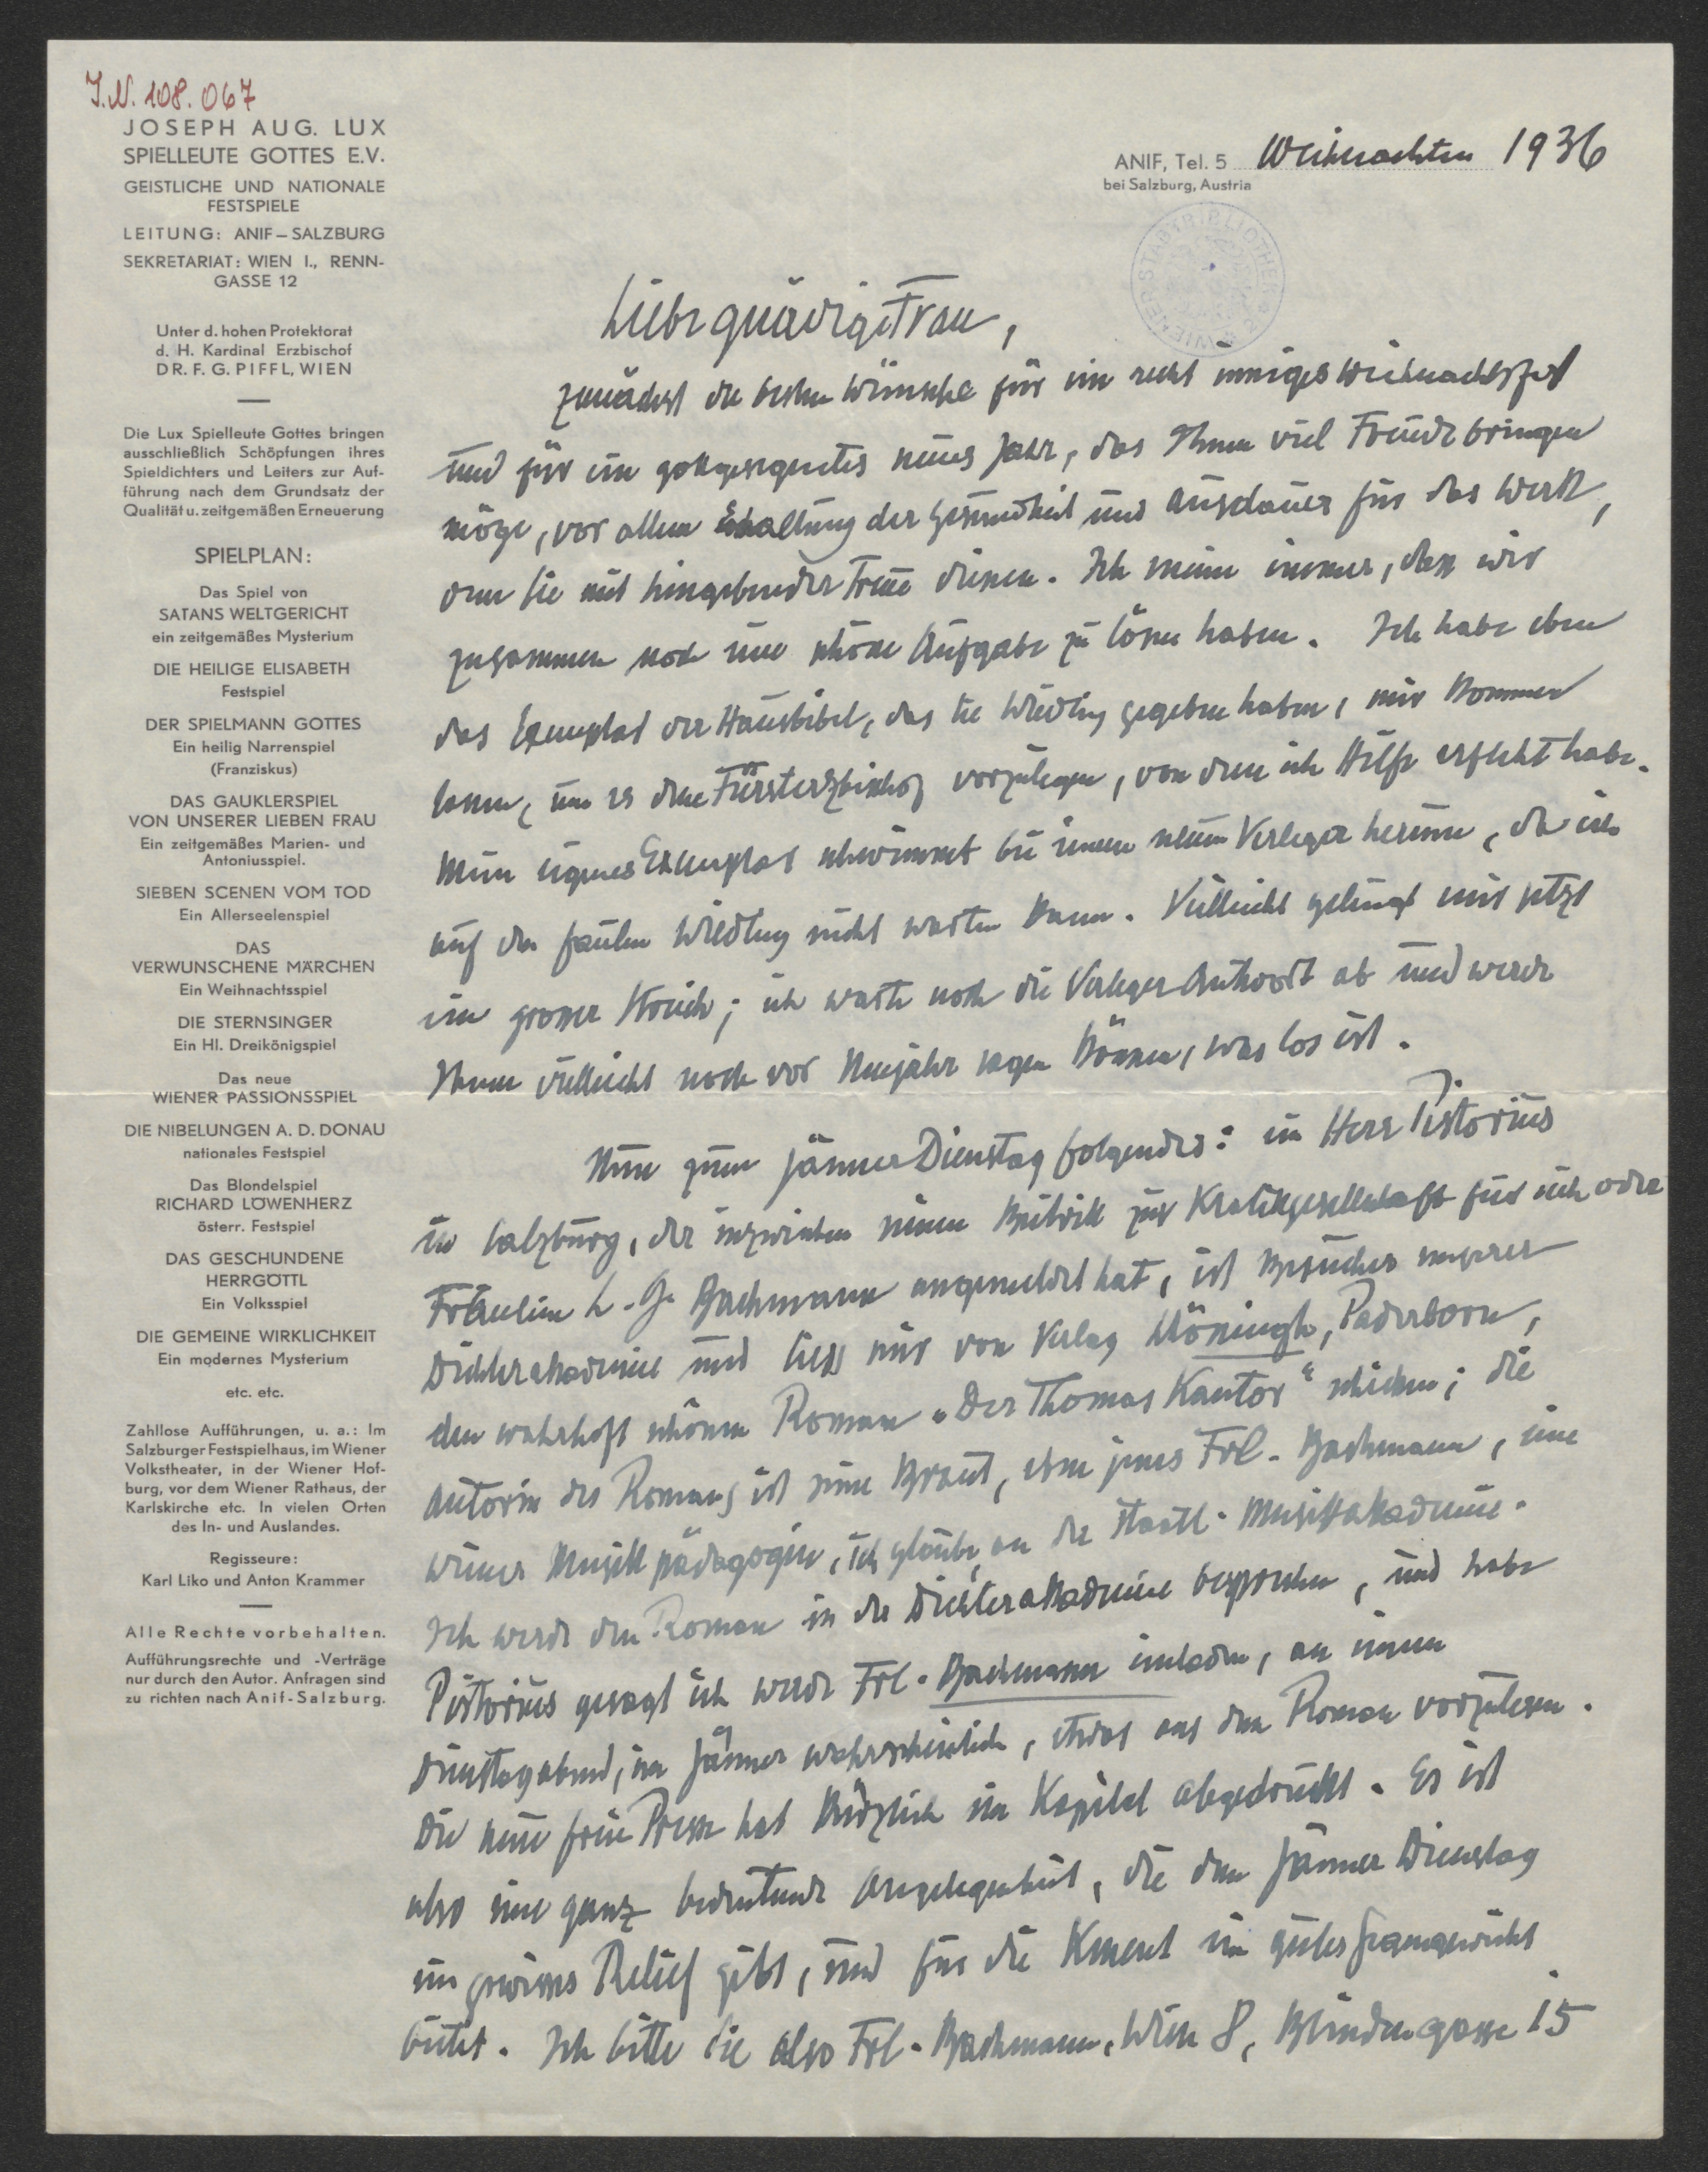 J.N. 108.067
JOSEPH AUG. LUX
SPIELLEUTE GOTTES E.V.
GEISTLICHE UND NATIONALE
FESTSPIELE
LEITUNG: ANIF – SALZBURG
SEKRETARIAT: WIEN I., RENN-
GASSE 12
Unter d. hohen Protektorat
d. H. Kardinal Erzbischof
DR. F. G. PIFFL, WIEN
Die Lux Spielleute Gottes bringen
ausschließlich Schöpfungen ihres
Spieldichters und Leiters zur Auf-
führung nach dem Grundsatz der
Qualität u. zeitgemäßen Erneuerung
SPIELPLAN:
Das Spiel von
SATANS WELTGERICHT
ein zeitgemäßes Mysterium
DIE HEILIGE ELISABETH
Festspiel
DER SPIELMANN GOTTES
Ein heilig Narrenspiel
(Franziskus)
DAS GAUKLERSPIEL
VON UNSERER LIEBEN FRAU
Ein zeitgemäßes Marien- und
Antoniusspiel.
SIEBEN SCENEN VOM TOD
Ein Allerseelenspiel
DAS
VERWUNSCHENE MÄRCHEN
Ein Weihnachtsspiel
DIE STERNSINGER
Ein Hl. Dreikönigspiel
Das neue
WIENER PASSIONSSPIEL
DIE NIBELUNGEN A. D. DONAU
nationales Festspiel
Das Blondelspiel
RICHARD LÖWENHERZ
österr. Festspiel
DAS GESCHUNDENE
HERRGÖTTL
Ein Volksspiel
DIE GEMEINE WIRKLICHKEIT
Ein modernes Mysterium
etc. etc.
Zahllose Aufführungen, u. a.: Im
Salzburger Festspielhaus, im Wiener
Volkstheater, in der Wiener Hof-
burg, vor dem Wiener Rathaus, der
Karlskirche etc. In vielen Orten
des In- und Auslandes.
Regisseure:
Karl Liko und Anton Krammer
Alle Rechte vorbehalten.
Aufführungsrechte und -Verträge
nur durch den Autor. Anfragen sind
zu richten nach Anif-Salzburg.
ANIF, Tel. 5 Weihnachten 1936
bei Salzburg, Austria
WIENER STADTBIBLIOTHEK
Liebe gnädige Frau,
zunächst die besten Wünsche für ein recht inniges Weihnachtsfest
und für ein gottgesegnetes neues Jahr, das Ihnen viel Freude bringen
möge, vor allem Erhaltung der Gesundheit und Ausdauer für das Werk,
dem Sie mit hingebender Treue dienen. Ich meine immer, dass wir
zusammen noch eine schöne Aufgabe zu lösen haben. Ich habe eben
das Exemplar der Hausbibel, das Sie Wiedling gegeben haben, mir kommen
lassen, um es dem Fürsterzbischof vorzulegen, von dem ich Hilfe erfleht habe.
Mein eigenes Exemplar schwimmt bei einem neuen Verleger herum, da ich
auf den faulen Wiedling nicht warten kann. Vielleicht gelingt mir jetzt
ein grosser Streich; ich warte noch die Verleger Antwort ab und werde
Ihnen vielleicht noch vor Neujahr sagen können, was los ist.
Nun zum Jänner Dienstag folgendes: ein Herr Pistorius
in Salzburg, der inzwischen seinen Beitritt zur Kralikgesellschaft für sich oder
Fräulein L. G. Bachmann angemeldet hat, ist Besucher unserer
Dichterakademie und liess mir von Verlag Schöningh, Paderborn,
den wahrhaft schönen Roman „Der Thomas Kantor" schicken; die
Autorin des Romans ist seine Braut, eben jenes Frl. Bachmann, eine
Wiener Musikpädagogin, ich glaube, an der staatl. Musikakademie.
Ich werde den Roman in der Dichterakademie besprechen, und habe
Pistorius gesagt ich werde Frl. Bachmann einladen, an einem
Dienstagabend, im Jänner wahrscheinlich, etwas aus dem Roman vorzulesen.
Die neue freie Presse hat kürzlich ein Kapitel abgedruckt. Es ist
also eine ganz bedeutende Angelegenheit, die dem Jänner Dienstag
ein gewisses Relief gibt, und für die Kment ein gutes Gegengewicht
bietet. Ich bitte Sie also Frl. Bachmann, Wien 8, Blindengasse 15